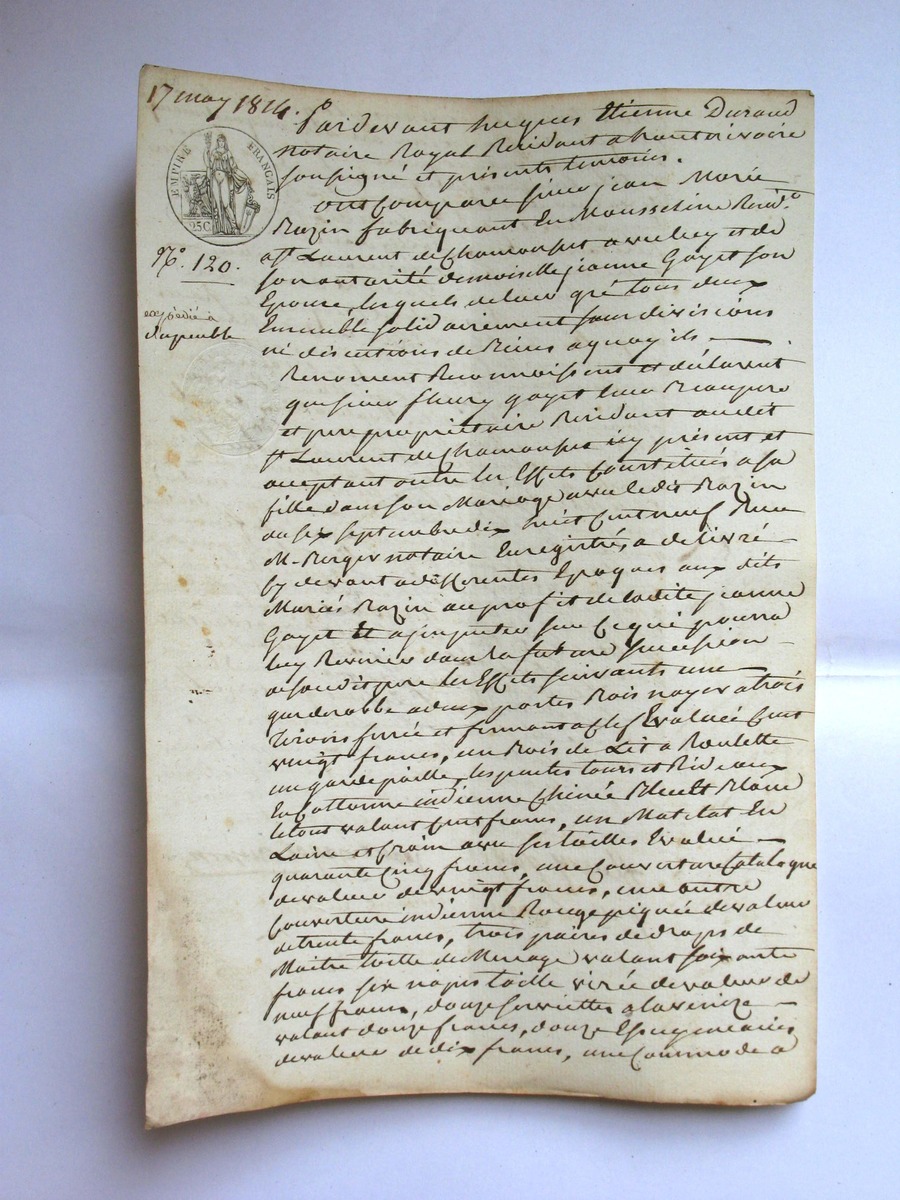 17 may 1814.
EMPIRE FRANÇAIS
25C
N°. 120.
expédié à
Pardevant hugues Etienne Durand
notaire Royal Residant a
soussigné et présents temoins.
ont Comparu sieur jean Marie
Razin fabriquant En Mousseline Resid.
a St Laurent de Chamousset avec luy et de
son autorité demoiselle jeanne Gayet son
Epouse, lesquels de leur gré tous deux
Ensemble solidairement sans divisions
ni discutions de Biens a quoy ils
Renoncent Reconnoissent et déclarent
que sieur fleury gayet leur Beaupere
et pere propriétaire Residant audit
St Laurent de Chamousset icy présent et
acceptant outre les Effets Constitués a sa
fille dans son Mariage avec ledit Razin
du six septembre dix huit Cent neuf Reçu
M. Berger notaire Enregistré, a delivré
cy devant a differentes Epoques aux dits
Mariés Razin au profit de ladite jeanne
Gayet Et a imputer sur Ce qui pourra
luy Revenir dans la future succession
de sondit pere les Effets suivants une
garderobbe a deux portes Bois noyer a trois
tiroirs ferrée et fermant a Clef Evaluée Cent
vingt francs, un Bois de Lit a Roulette
un garde paille, les pantes tours et Rideaux
En Cottonne indienne Chinée Bleu et Blanc
le tout valant Cent francs, un Matelat En
Laine et Crain avec ses toilles Evalué
quarante Cinq francs, une Couverture Catalogne
de valeur de vingt francs, une autre
Couverture indienne Rouge piquée de valeur
de trente francs, trois paires de draps de
Maitre toille de Menage valant soixante
francs six napes toille de valeur de
neuf francs, douze serviettes a la venize
valant douze francs, douze Essuymains
de valeur de dix francs, une Commode a